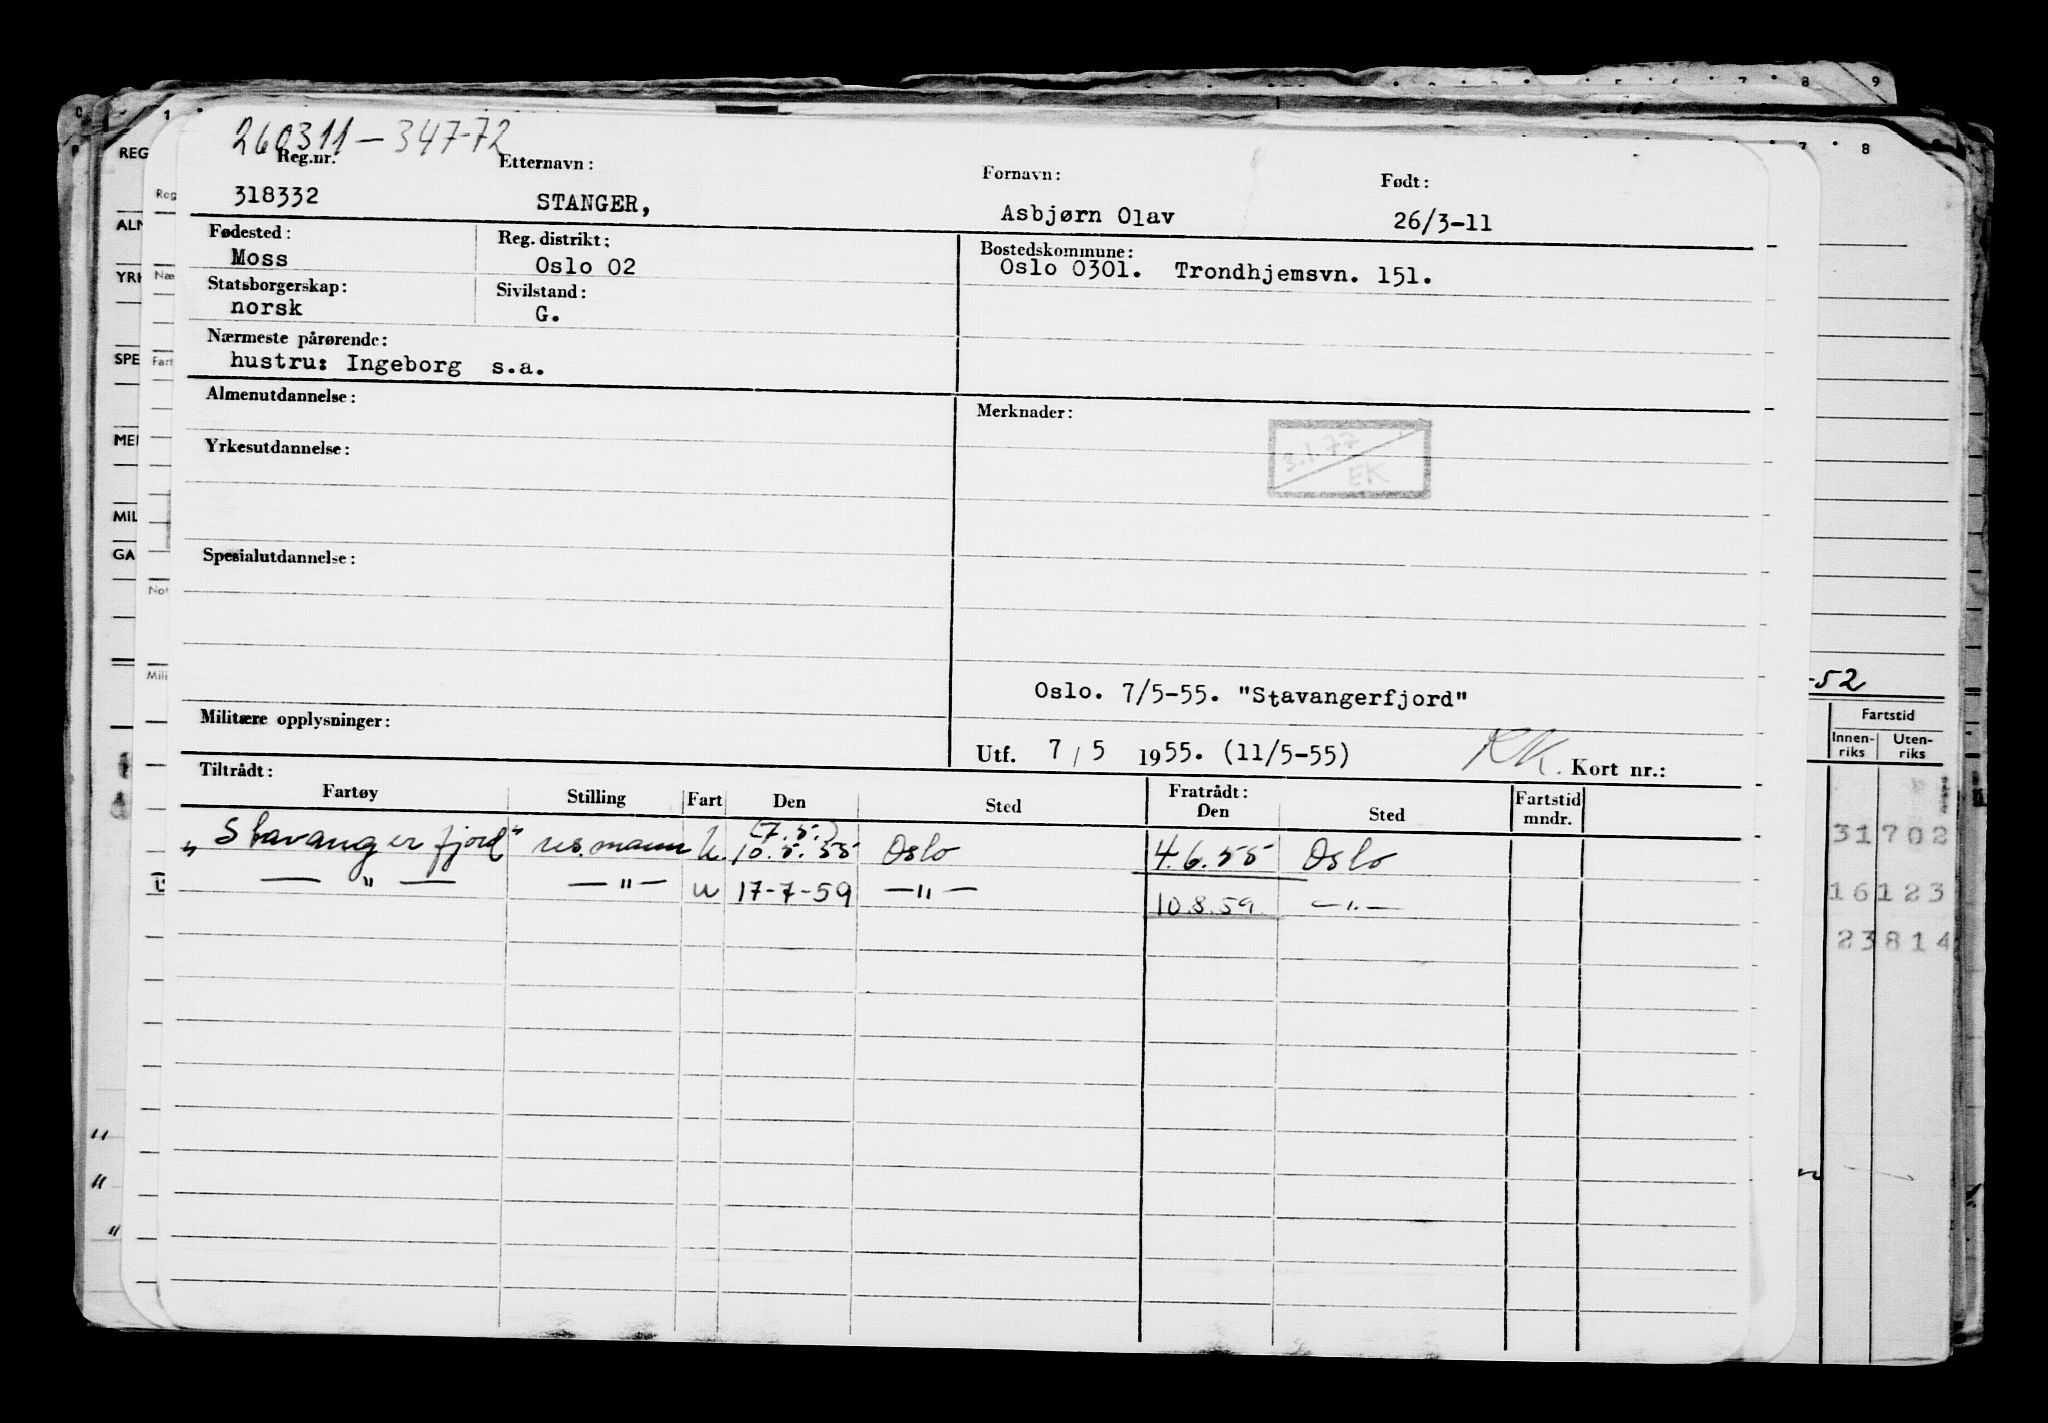 260311-34772
Reg.nr. Etternavn: Fornavn: Født:
318332 STANGER, Asbjørn Olav 26/3-11
Fødested: Reg. distrikt: Bostedskommune:
Moss Oslo 02 Oslo 0301. Trondhjemsvn. 151.
Statsborgerskap: Sivilstand:
norsk G.
Nærmeste pårørende:
hustru: Ingeborg s.a.
Almenutdannelse: Merknader:
3.1.77
EK
Yrkesutdannelse:
Spesialutdannelse:
Oslo. 7/5-55. "Stavangerfjord"
Militære opplysninger:
Utf. 7/5 1955. (11/5-55) Kort nr.:
Tiltrådt: Fratrådt:
Fartøy Stilling Fart Den Sted Den Sted Fartstid mndr.
(7.5.)
"Stavangerfjord" res.mann u. 10.5.55 Oslo 4.6.55 Oslo
— " — — " — u 17-7-59 — " — 10.8.59. — " —
REG
ALN
YRK
SPE
MEI
MIL
GA
Reg
Næ
Fart
Not
Mili
7 8 9
-52
Fartstid
Innen-riks Uten-riks
31702
16123
23814